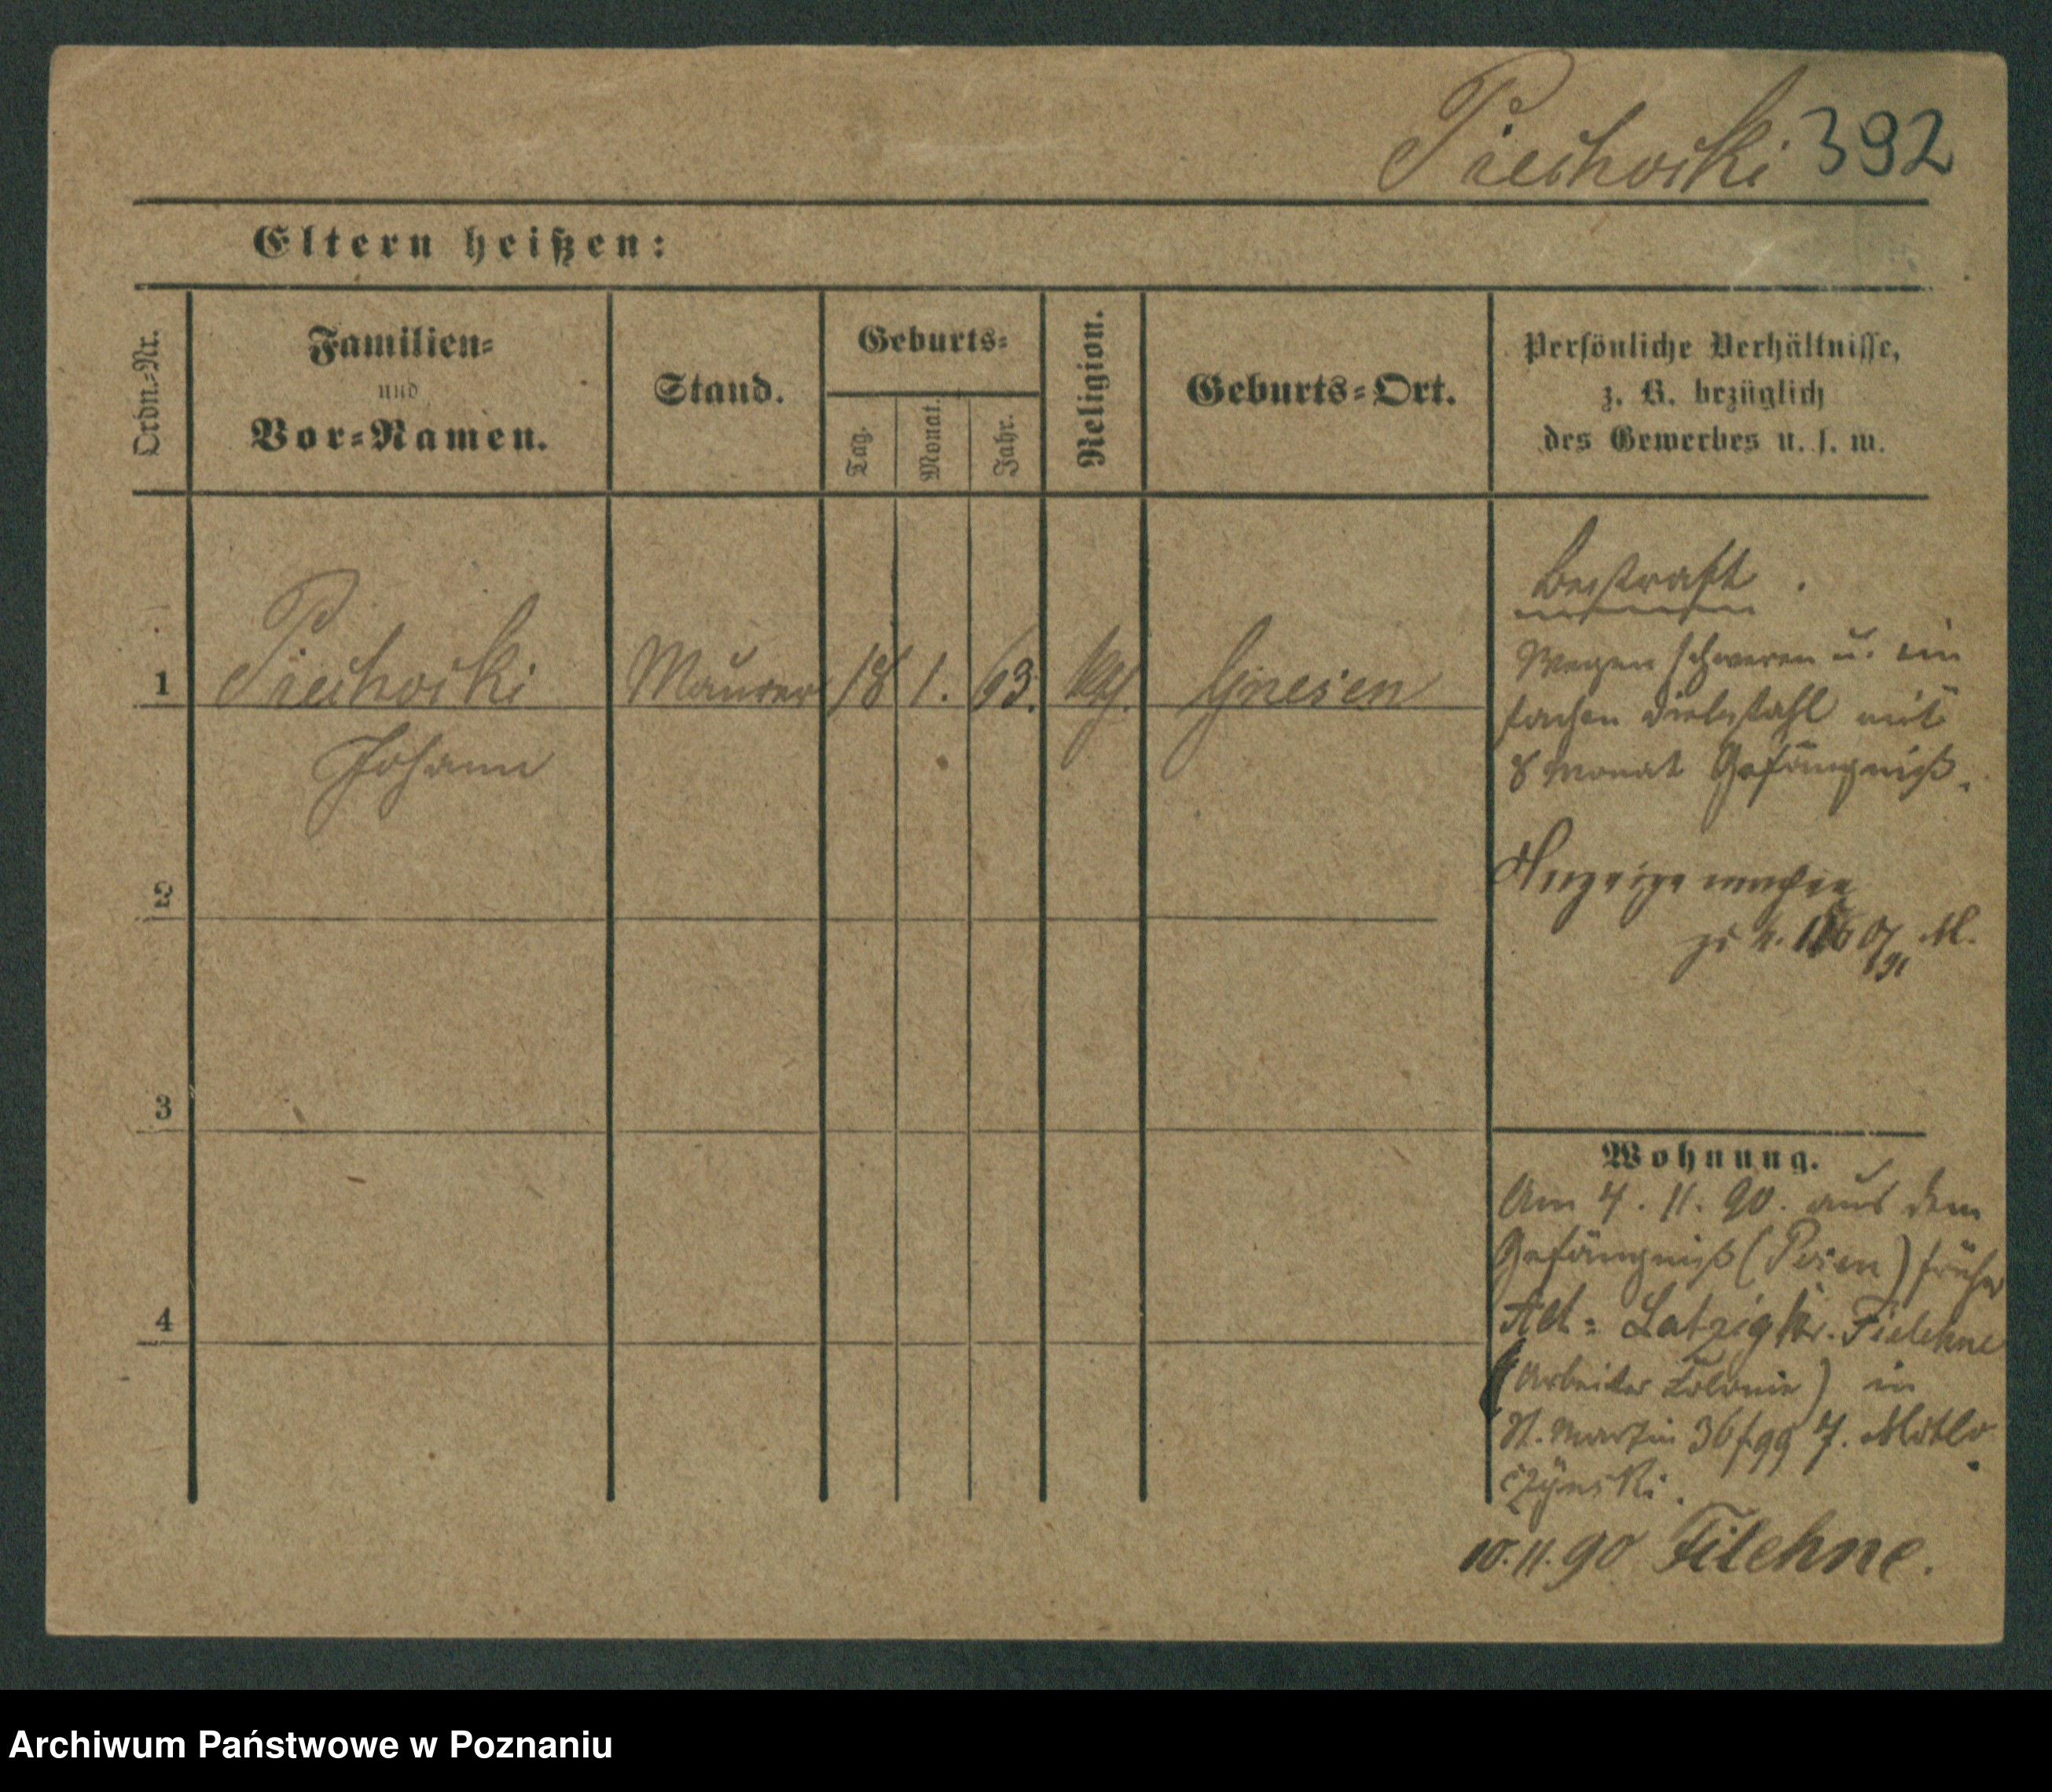 Piechocki 392
Eltern heißen:
Ordn.-Nr.
Familien-
und
Vor-Namen.
Stand.
Geburts-
Tag.
Monat.
Jahr.
Religion.
Geburts-Ort.
Persönliche Verhältnisse,
z. B. bezüglich
des Gewerbes u. s. w.
1 Piechocki Maurer 18 1. 63. kth. Gnesen
Johann
Bestraft.
Wegen schweren u. ein
fachen Diebstahl mit
8 Monat Gefängniß.
Anzeige machen
2
3
4
Wohnung.
Am 4. 11. 90. aus dem
Gefängniß (Posen) früher
Alt- Latzig Kr. Filehne
(Arbeiter Colonie) in
St. Martin 36
czynski.
10. 11. 90 Filehne.
Archiwum Państwowe w Poznaniu